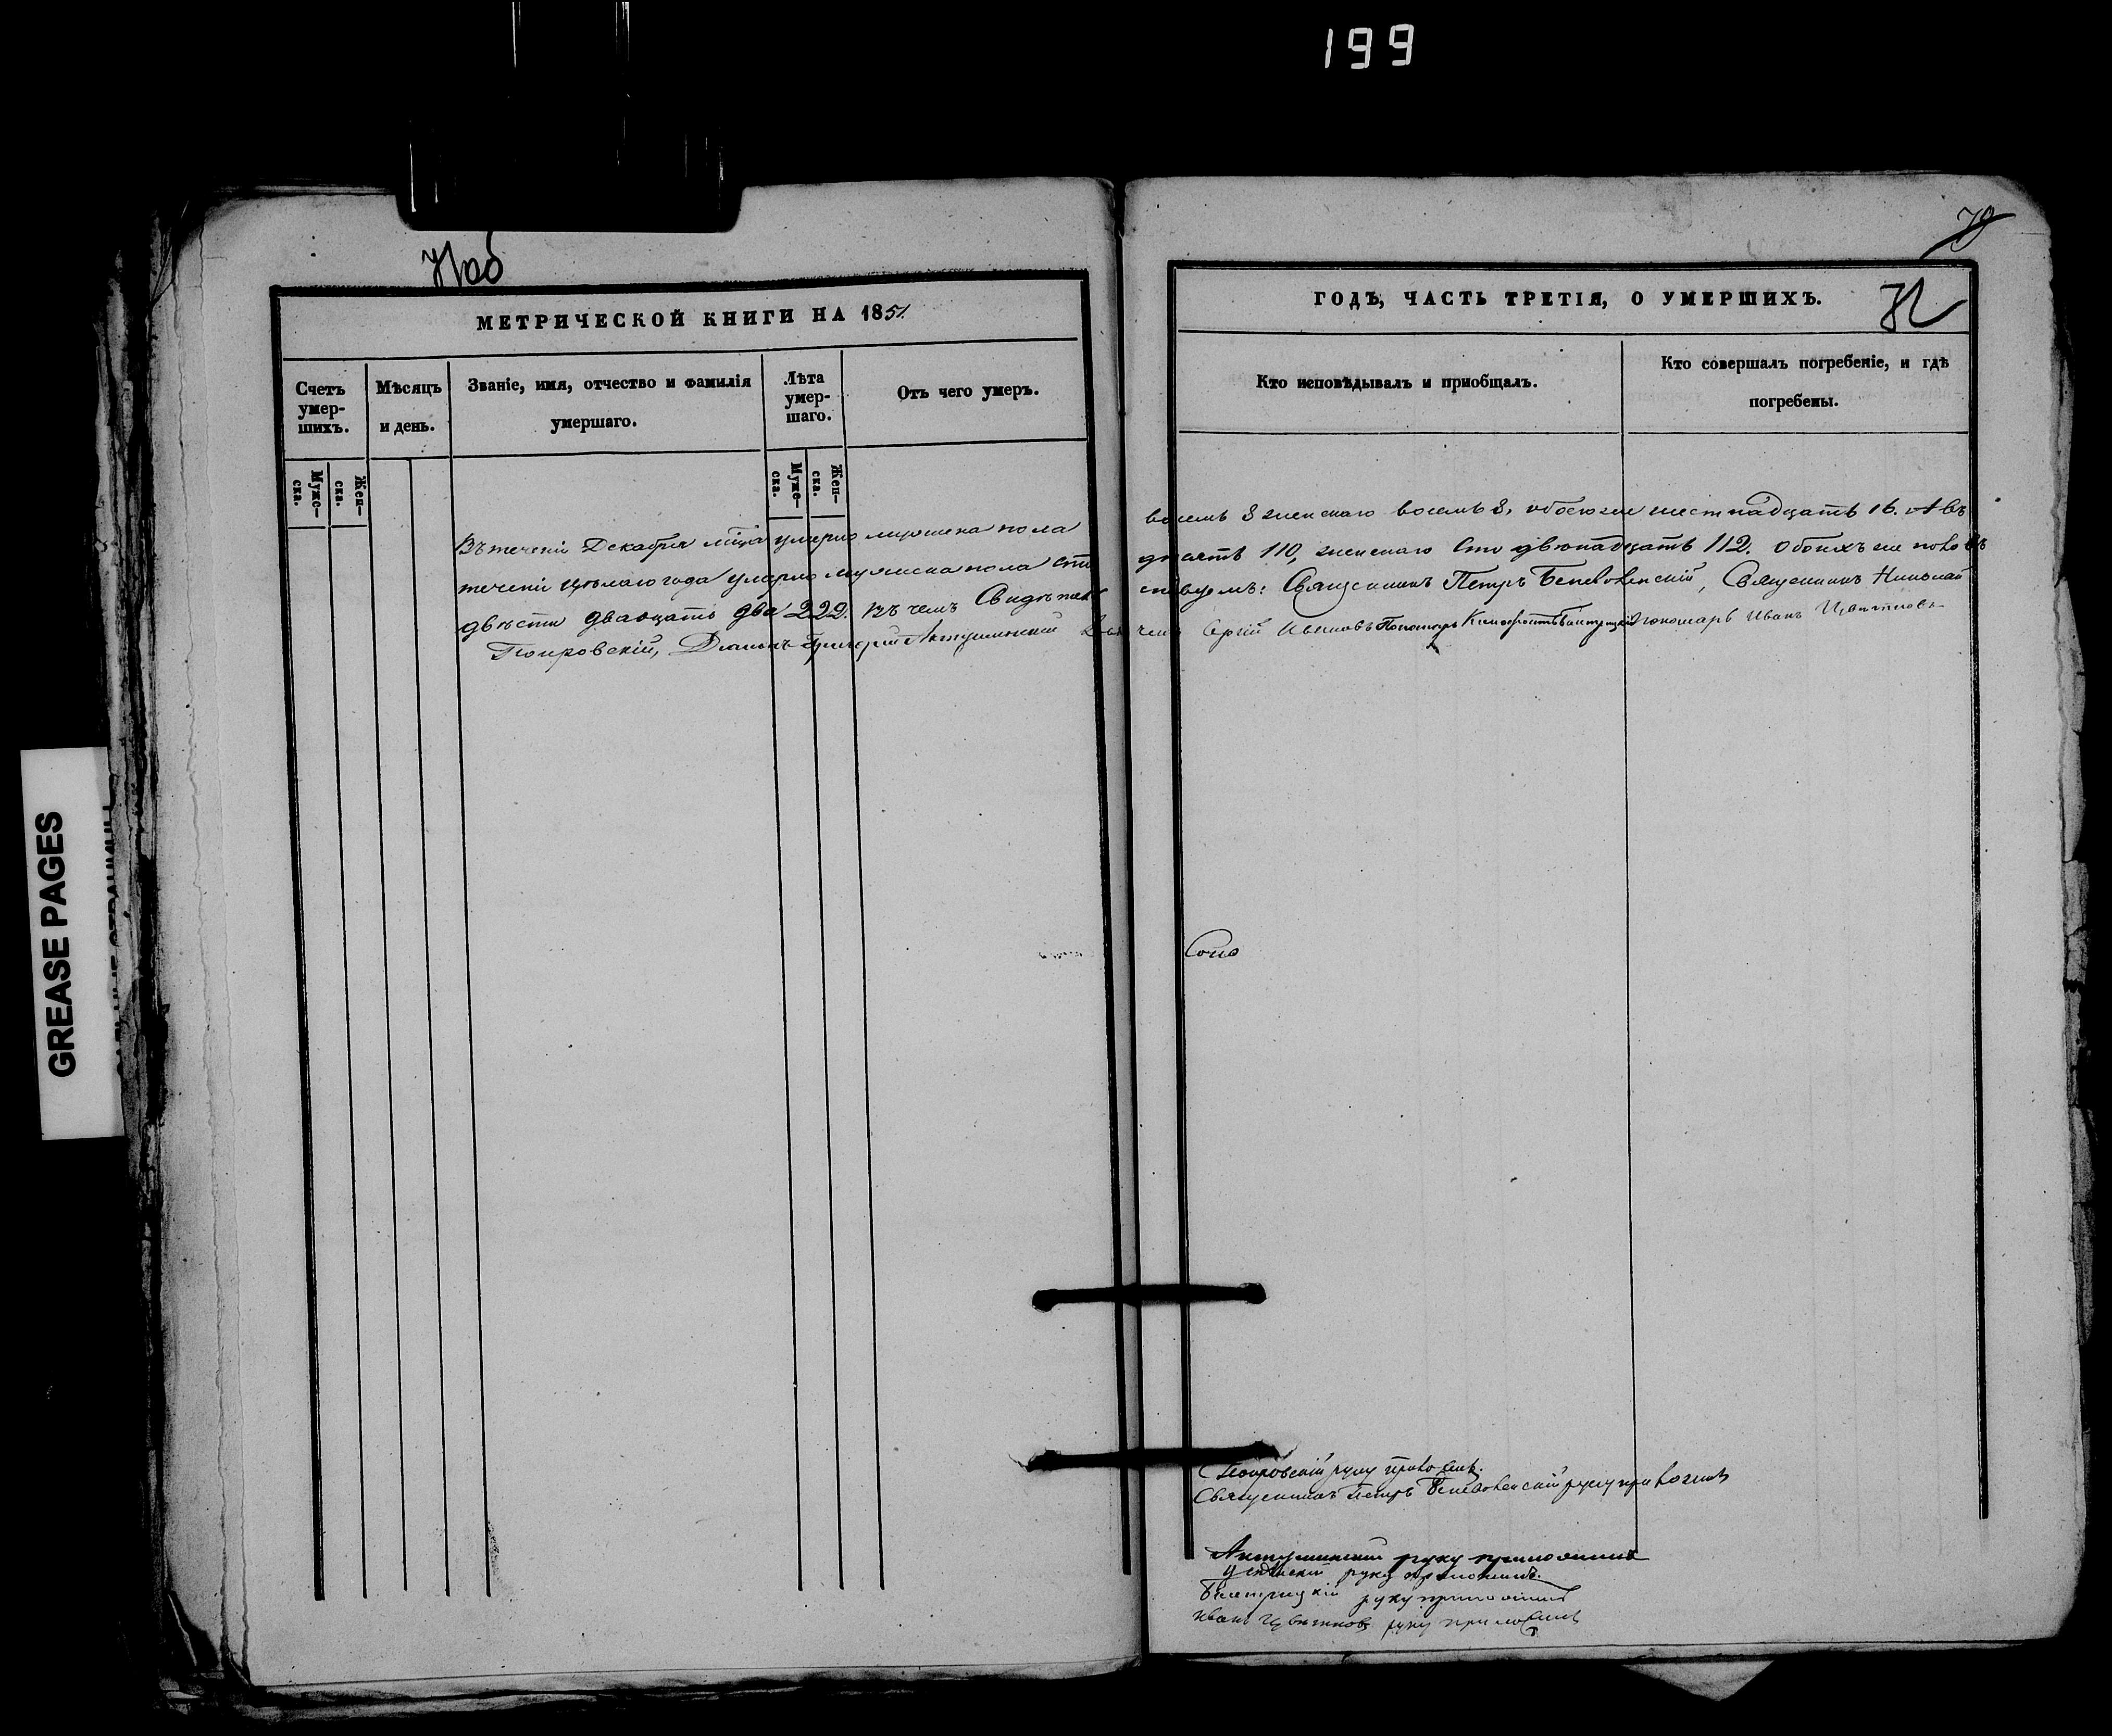 199
71об
МЕТРИЧЕСКОЙ КНИГИ НА 1851.
Счетъ умер-шихъ.
Мѣсяцъ и день.
Званіе, имя, отчество и фамилія умершаго.
Лѣта умер-шаго.
Отъ чего умеръ.
Муже-ска.
Жен-ска.
Муже-ска.
Жен-ска.
Въ теченіи Декабря мѣца умерло мужеска пола
теченіи цѣлаго года умерло мужеска пола сто
двѣсти двадцать два 222. Въ чемъ Свидѣтель
Покровскій, Діаконъ Григорій Актушинскій
GREASE PAGES
79
72
ГОДЪ, ЧАСТЬ ТРЕТІЯ, О УМЕРШИХЪ.
Кто исповѣдывалъ и приобщалъ.
Кто совершалъ погребеніе, и гдѣ погребены.
восемь 8 женскаго восемь 8, обоего же шестнадцать 16. А въ
десять 110, женскаго сто двѣнадцать 112. Обоихъ же половъ
ствуемъ: Священникъ Петръ, Священникъ Николай
Сергій Пономарь Пономарь Иванъ Цвѣтковъ
Покровскій руку приложилъ.
Священникъ Петръ руку приложилъ
Актушинскій руку приложилъ
руку приложилъ.
руку приложилъ
Иванъ Цвѣтковъ руку приложилъ